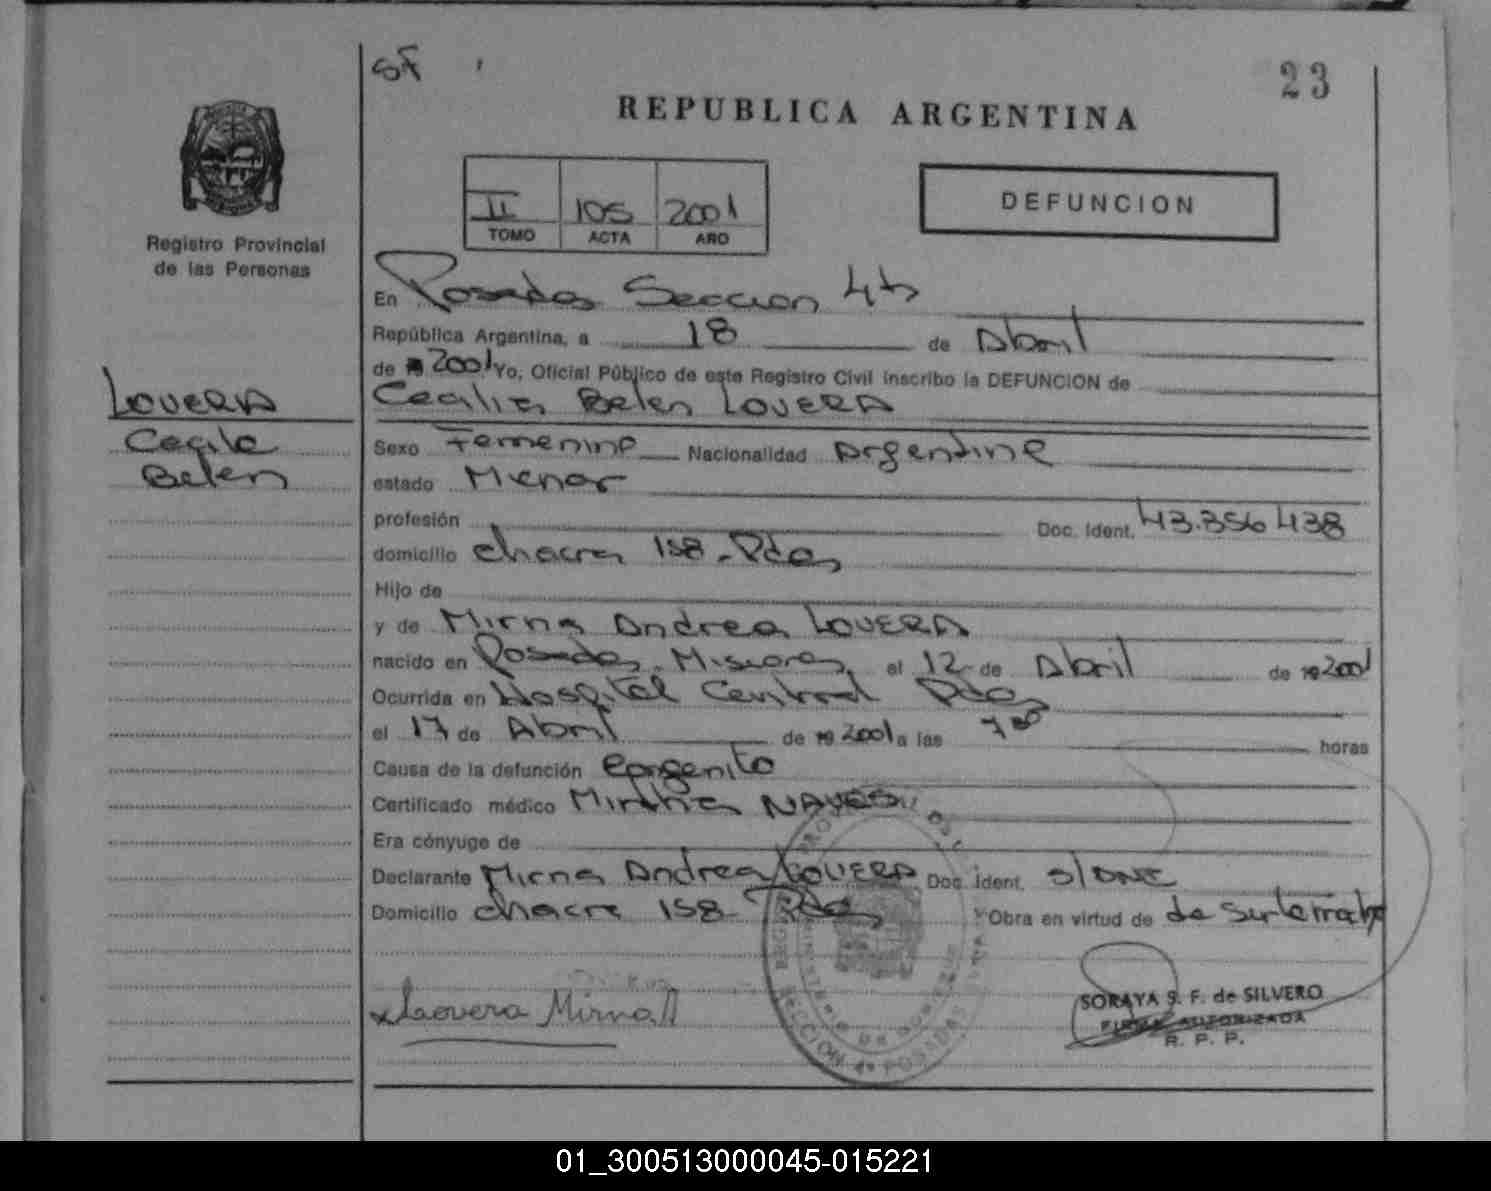 SF
23
REPUBLICA ARGENTINA
Registro Provincial
de las Personas
II 105 2001
TOMO ACTA AÑO
DEFUNCION
En Posadas Seccion 4ta
República Argentina, a 18 de Abril
de 2001 Yo, Oficial Público de este Registro Civil inscribo la DEFUNCION de
Cecilia Belen LOVERA
LOVERA
Cecilia
Belen
Sexo Femenino Nacionalidad Argentina
estado Menor
profesión Doc. Ident. 43.356438
domicilio chacra 158 - Pdas
Hijo de
y de Mirna Andrea LOVERA
nacido en Posadas - Misiones el 12 de Abril de 19 2001
Ocurrida en Hospital Central Pdas
el 17 de Abril de 19 2001 a las 7 30 horas
Causa de la defunción Congenito
Certificado médico Mirtha
Era cónyuge de
Declarante Mirna Andrea LOVERA Doc. Ident. S/DNI
Domicilio chacra 158 - Pdas Obra en virtud de
x Lovera Mirna A
SECCION 4ª POSADAS
SORAYA S. F. de SILVERO
FIRMA AUTORIZADA
R. P. P.
01_300513000045-015221